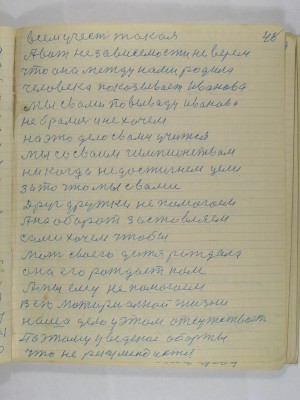 48
всем учест такая
А вот независемости не верем
что она между нами родила
человека показывает Иванова
мы с вами по выводу Иванова
не врали и не хочем
на это дело с вами учится
мы со своим чемпионством
никогда недостигнем цели
за то что мы с вами
друг дружки не помогаем
А на оборот заставляем
сами хочем чтобы
мат своего детя рождала
она его рождает нам
А мы ему не помогаем
В его материалной жизни
наша дело у этом отсутствает
Поэтому уведение аборты
что не рекомендуется